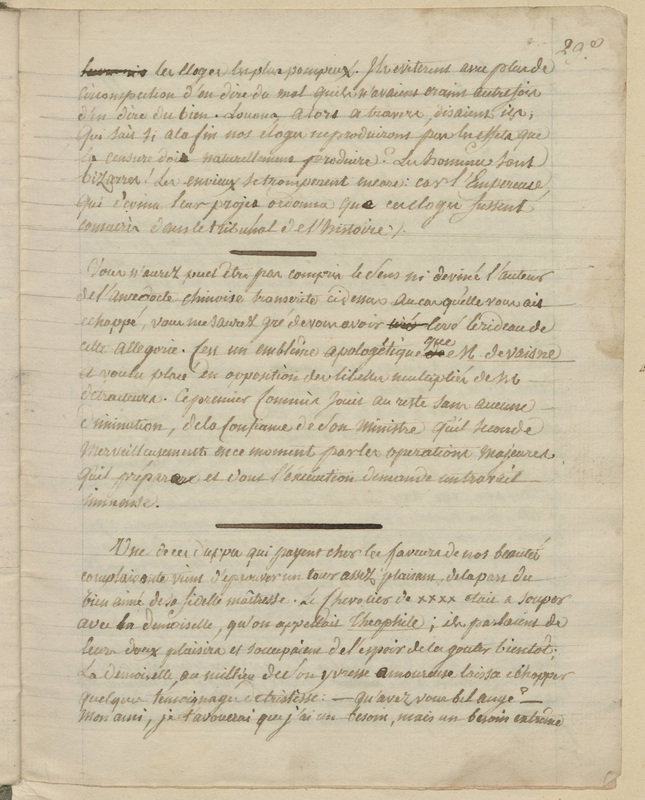 29e
les eloges les plus pompeux. Ils eviterent avec plus de
circonspection d'en dire du mal qu'ils n'avaient craint autrefois
d'en dire du bien. Louons à tort à travers, disaient ils;
qui sait si à la fin nos eloges ne produiront pas les effets que
la censure doit naturellement produire? Les hommes sont
bizarres! Les envieux se tromperent encore: car l'Empereur,
qui devina leur projet ordonna que ces eloges fussent
consacrés dans le tribunal de l'histoire.
Vous n'aurez peut être pas compris le sens ni deviné l'auteur
de l'anecdote chinoise transcrite ci dessus. Au cas qu'elle vous ait
echappé, vous me saurez gré de vous avoir levé le rideau de
cette allegorie. C'est un emblême apologétique que M. de Vaisne
a voulu placer en opposition des libelles multipliés de ses
détracteurs. Ce premier Commis jouit au reste sans aucune
diminution, de la confiance de son Ministre qu'il seconde
merveilleusement en ce moment par les operations majeures
qu'il prépare et dont l'exécution demande un travail
immense.
Une de ces duppes qui payent cher les faveurs de nos beautés
complaisantes vient d'eprouver un tour assez plaisant, de la part du
bien aimé de sa fidelle maîtresse. Le Chevalier de xxxx etait a souper
avec la demoiselle, qu'on appellait Theophile; ils parlaient de
leurs doux plaisirs et s'occupaient de l'espoir de les gouter bientôt;
La Demoiselle, au milieu de son yvresse amoureuse laissa echapper
quelques temoignages de tristesse: — qu'avez vous bel ange? —
Mon ami, je t'avouerai que j'ai un besoin, mais un besoin extrême